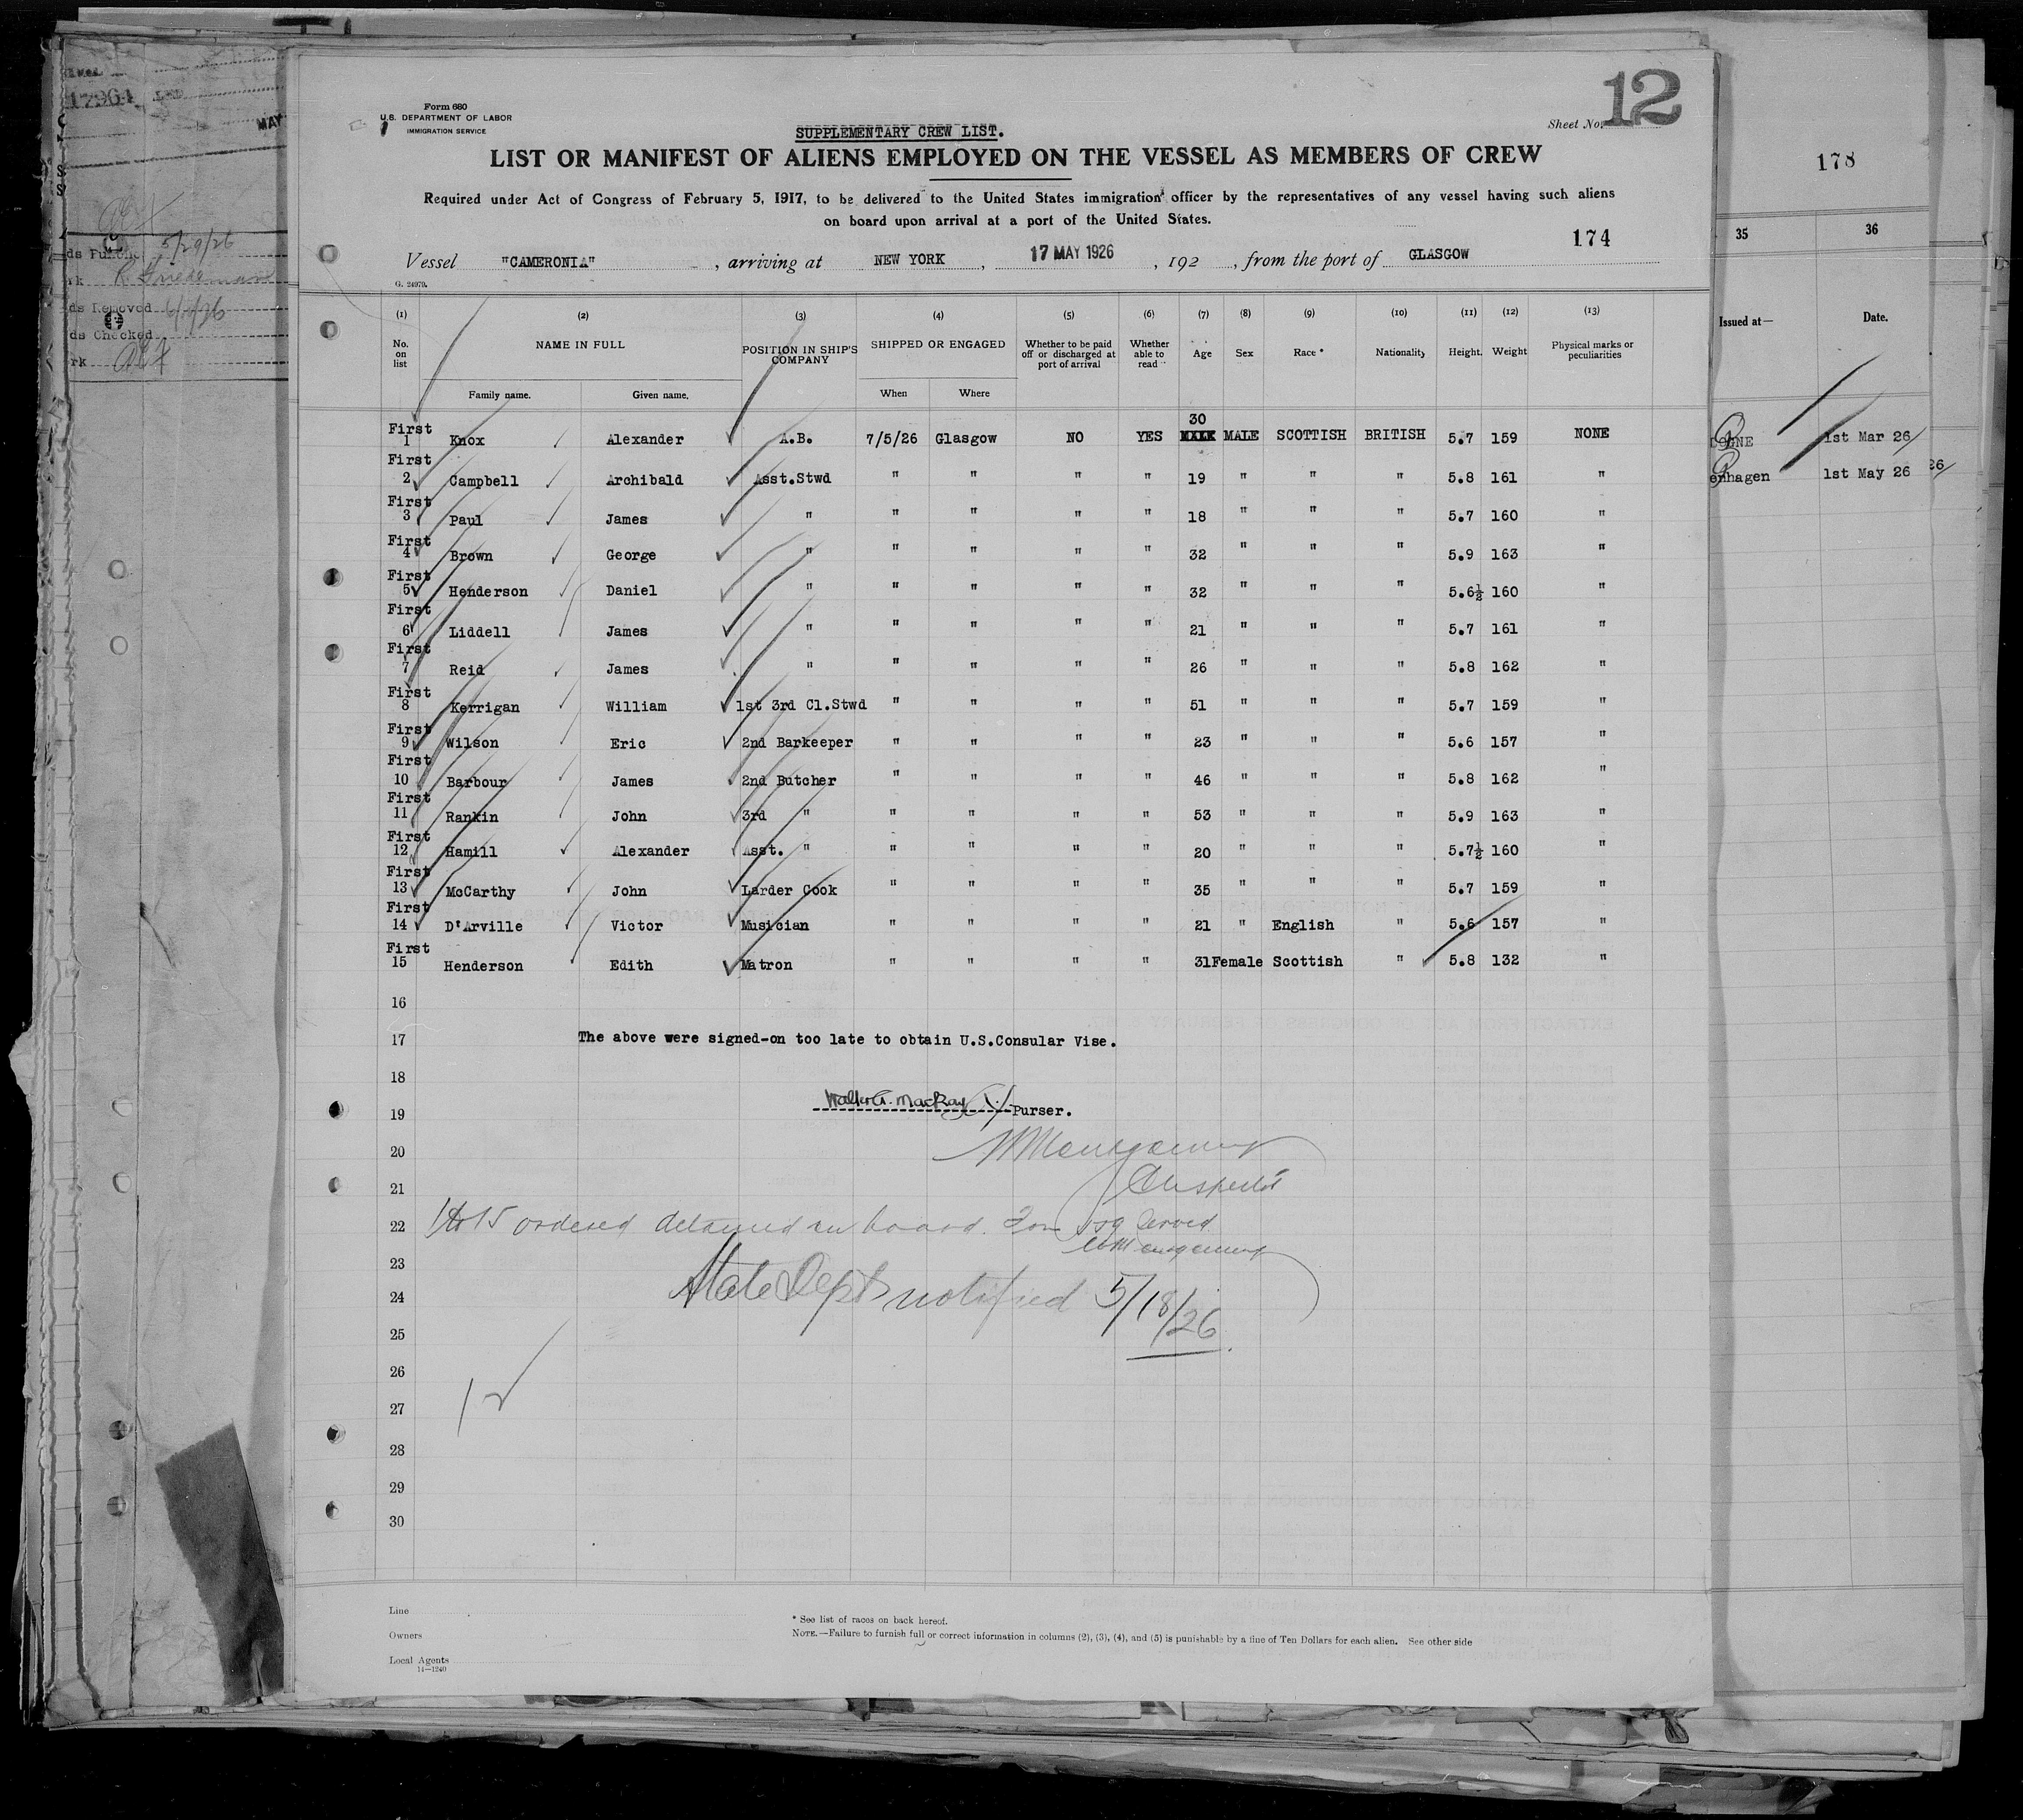 12
Form 680
U.S. DEPARTMENT OF LABOR
IMMIGRATION SERVICE
SUPPLEMENTARY CREW LIST.
Sheet No.
LIST OR MANIFEST OF ALIENS EMPLOYED ON THE VESSEL AS MEMBERS OF CREW
Required under Act of Congress of February 5, 1917, to be delivered to the United States immigration officer by the representatives of any vessel having such aliens
on board upon arrival at a port of the United States.
174
Vessel "CAMERONIA", arriving at NEW YORK, 17 MAY 1926, 192 , from the port of GLASGOW
G. 24979.
(1) (2) (3) (4) (5) (6) (7) (8) (9) (10) (11) (12) (13)
No. on list NAME IN FULL POSITION IN SHIP'S COMPANY SHIPPED OR ENGAGED Whether to be paid off or discharged at port of arrival Whether able to read Age Sex Race * Nationality Height. Weight Physical marks or peculiarities
Family name. Given name. When Where
First 1 Knox Alexander A.B. 7/5/26 Glasgow NO YES 30 MALE SCOTTISH BRITISH 5.7 159 NONE
First 2 Campbell Archibald Asst.Stwd " " " " 19 " " " 5.8 161 "
First 3 Paul James " " " " " 18 " " " 5.7 160 "
First 4 Brown George " " " " " 32 " " " 5.9 163 "
First 5 Henderson Daniel " " " " " 32 " " " 5.6½ 160 "
First 6 Liddell James " " " " " 21 " " " 5.7 161 "
First 7 Reid James " " " " " 26 " " " 5.8 162 "
First 8 Kerrigan William 1st 3rd Cl.Stwd " " " " 51 " " " 5.7 159 "
First 9 Wilson Eric 2nd Barkeeper " " " " 23 " " " 5.6 157 "
First 10 Barbour James 2nd Butcher " " " " 46 " " " 5.8 162 "
First 11 Rankin John 3rd " " " " " 53 " " " 5.9 163 "
First 12 Hamill Alexander Asst. " " " " " 20 " " " 5.7½ 160 "
First 13 McCarthy John Larder Cook " " " " 35 " " " 5.7 159 "
First 14 D'Arville Victor Musician " " " " 21 " English " 5.6 157 "
First 15 Henderson Edith Matron " " " " 31 Female Scottish " 5.8 132 "
16
17 The above were signed-on too late to obtain U.S.Consular Vise.
18
19 Walter G. MacKay Purser.
20 Montgomery
21 Inspector
22 1 to 15 ordered detained on board. Form 559 served
Montgomery
23
24 State Dept notified 5/18/26
25
26
27
28
29
30
Line
Owners
Local Agents
14—1240
* See list of races on back hereof.
NOTE.—Failure to furnish full or correct information in columns (2), (3), (4), and (5) is punishable by a fine of Ten Dollars for each alien. See other side
178
35 36
Issued at— Date.
1st Mar 26
enhagen 1st May 26
17964
MAY
5/29/26
ds Removed
ds Checked